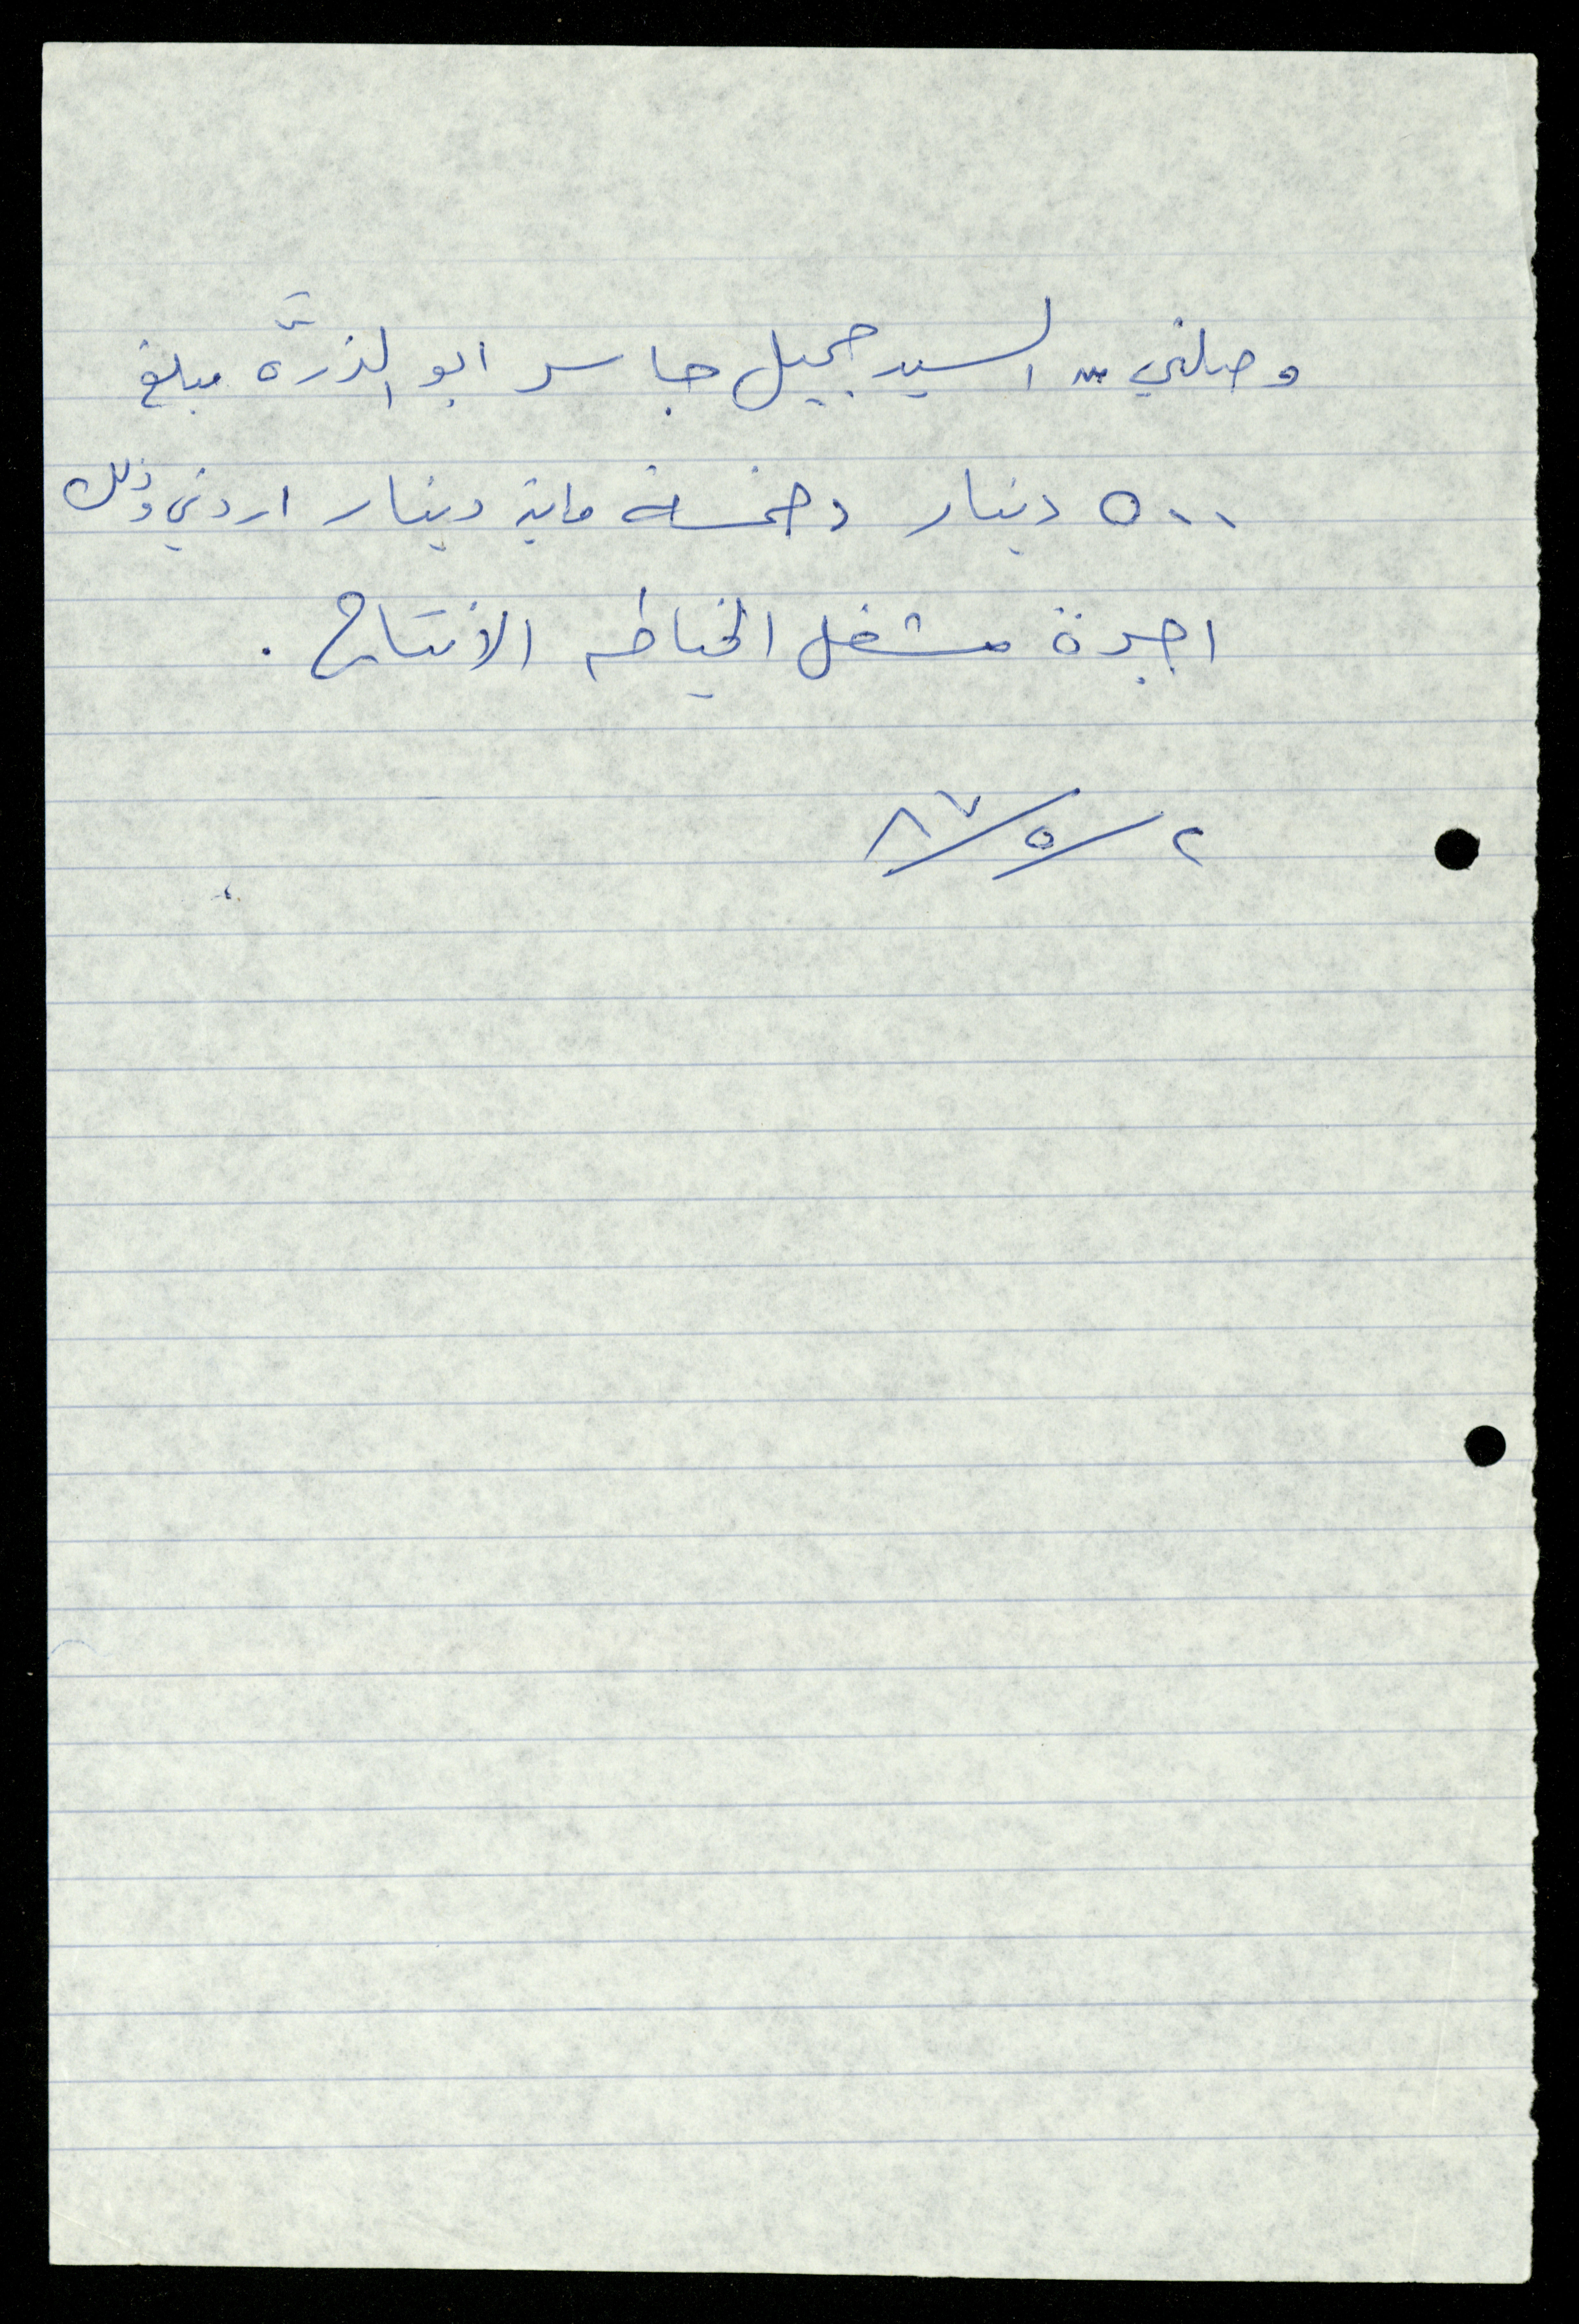 وصلني من السيد جميل جاسر ابو الذرَّه مبلغ
٥٠٠ دينار وخمسة ماية دينار اردني وذلك
اجرة مشغل الخياطه الانتاج .
٢/٥/٨٧